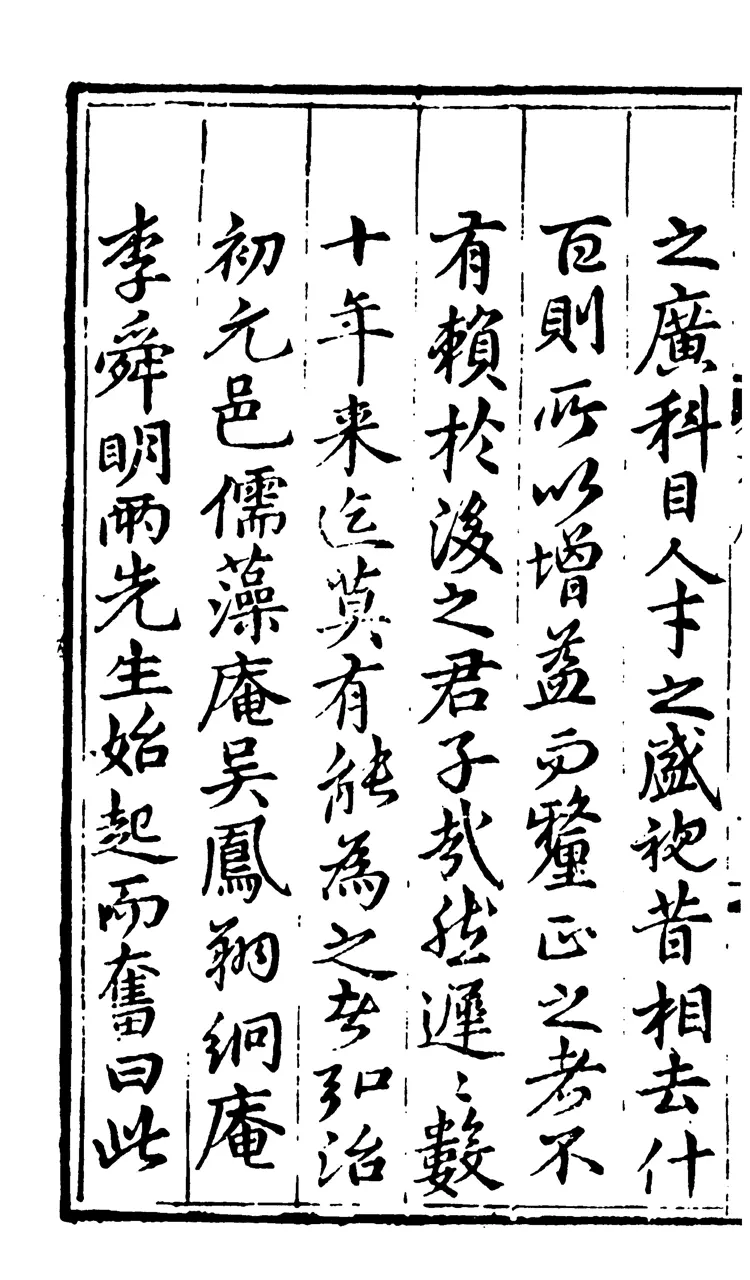 之廣科目人才之盛視昔相去什
百則所以增益而釐正之者不
有賴於後之君子哉然遲〻數
十年来迄莫有能為之者弘治
初元邑儒藻庵吴鳳翔絅庵
李舜明兩先生始起而奮曰此